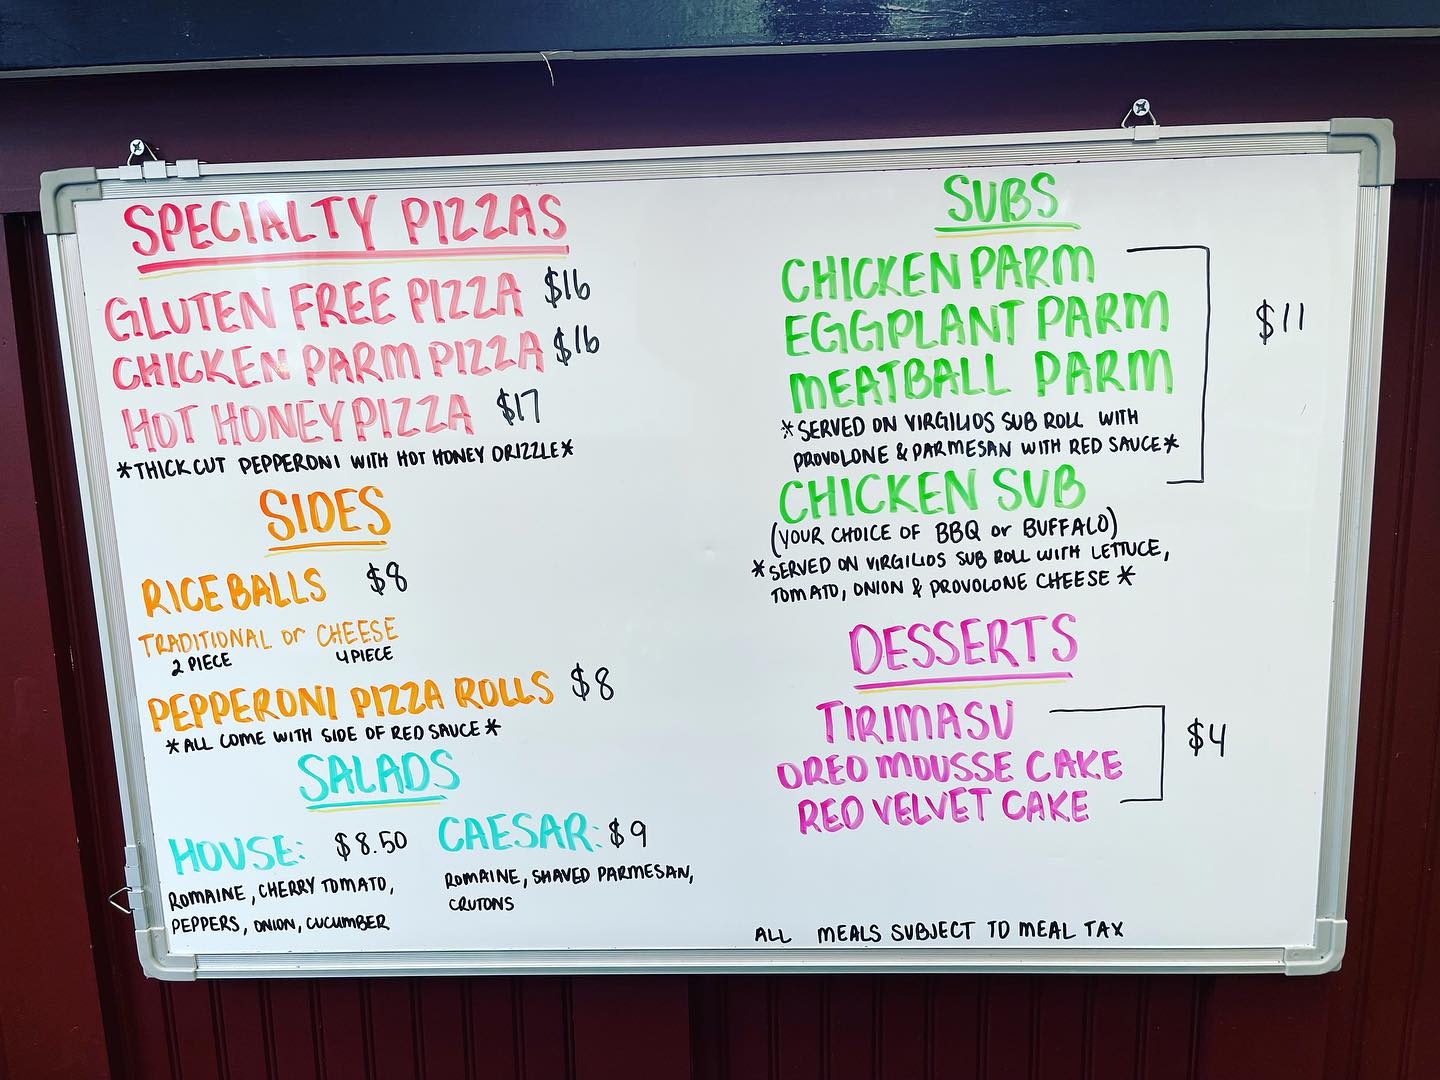 SPECIALTY PIZZAS
GLUTEN FREE PIZZA $16
CHICKEN PARM PIZZA $16
HOT HONEY PIZZA $17
*THICK CUT PEPPERONI WITH HOT HONEY DRIZZLE*
SIDES
RICE BALLS $8
TRADITIONAL or CHEESE
2 PIECE 4 PIECE
PEPPERONI PIZZA ROLLS $8
*ALL COME WITH SIDE OF RED SAUCE*
SALADS
HOUSE: $8.50
ROMAINE, CHERRY TOMATO,
PEPPERS, ONION, CUCUMBER
CAESAR: $9
ROMAINE, SHAVED PARMESAN,
CRUTONS
SUBS
CHICKEN PARM
EGGPLANT PARM
MEATBALL PARM
$11
*SERVED ON VIRGILIOS SUB ROLL WITH
PROVOLONE & PARMESAN WITH RED SAUCE*
CHICKEN SUB
(YOUR CHOICE OF BBQ or BUFFALO)
*SERVED ON VIRGILIOS SUB ROLL WITH LETTUCE,
TOMATO, ONION & PROVOLONE CHEESE*
DESSERTS
TIRIMASU
OREO MOUSSE CAKE
RED VELVET CAKE
$4
ALL MEALS SUBJECT TO MEAL TAX